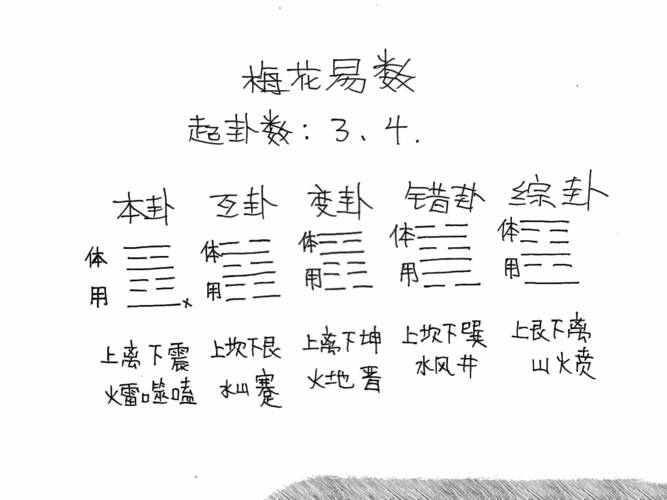 梅花易数
起卦数：3、4.
本卦 互卦 变卦 错卦 综卦
体 体 体 体 体
用 x 用 用 用 用
上离下震 上坎下艮 上离下坤 上坎下巽 上艮下离
火雷噬嗑 水山蹇 火地晋 水风井 山火贲